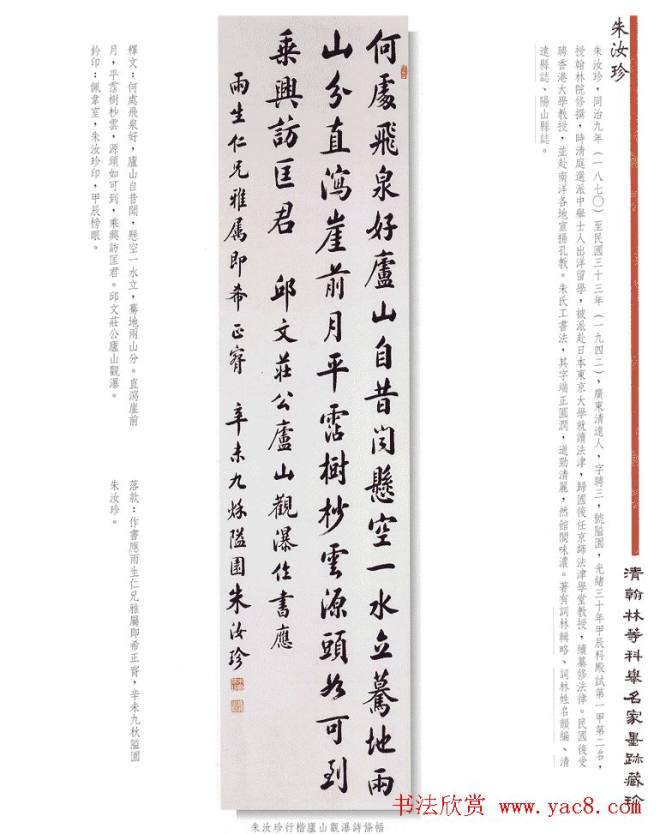 朱汝珍
朱汝珍，同治九年（一八七〇）至民國三十三年（一九四二），廣東清遠人，字聘三，號隘園，光緒三十年甲辰科殿試第一甲第二名，
授翰林院修撰，時清庭選派中學士人出洋留學，被派赴日本東京大學就讀法律，歸國後任京師法律學堂教授，續纂修法律。民國後受
聘香港大學教授，並赴南洋各地宣揚孔教。朱氏工書法，其字端正圓潤，遒勁清麗，然館閣味濃。著有詞林輯略、詞林姓名韻編、清
遠縣誌、陽山縣誌。
清翰林等科舉名家墨跡藏珍
何處飛泉好廬山自昔聞懸空一水立驀地兩
山分直瀉崖前月平霑樹杪雲源頭如可到
乘興訪匡君 邱文莊公廬山觀瀑作書應
雨生仁兄雅属即希正窜 辛未九秌隘園朱汝珍
釋文：何處飛泉好，廬山自昔聞，懸空一水立，驀地兩山分。直瀉崖前
月，平霑樹杪雲，源頭如可到，乘興訪匡君。邱文莊公廬山觀瀑。
鈐印：佩韋室，朱汝珍印，甲辰榜眼。
落款：作書應雨生仁兄雅屬即希正窜，辛未九秋隘園
朱汝珍。
朱汝珍行楷廬山觀瀑詩條幅
书法欣赏 www.yac8.com